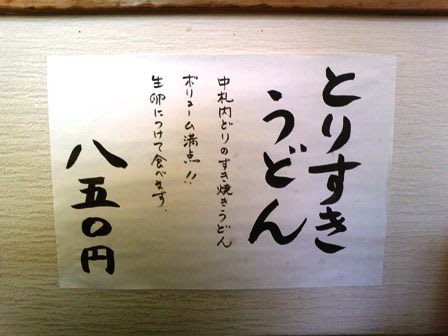 とりすき
うどん
中札内どりのすき焼きうどん
ボリューム満点!!
生卵につけて食べます。
八五〇円